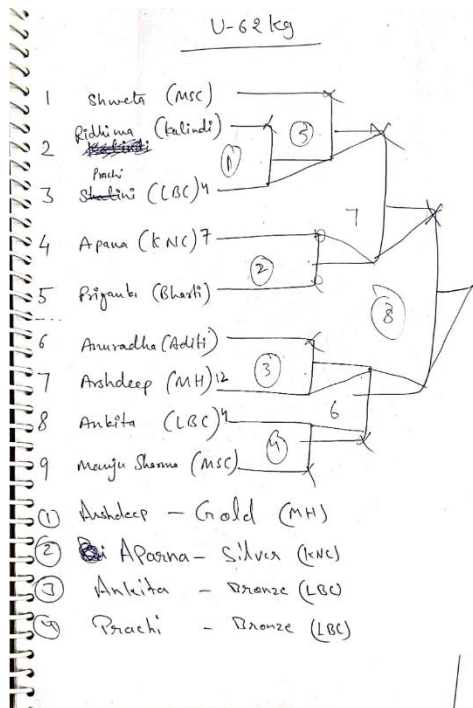 U-62 kg
1 Shweta (MSC)
Ridhima (Kalindi)
2
Prachi
3 Shalini (LBC) 4
4 Apana (KNC) 7
5 Priyanka (Bharti)
6 Anuradha (Aditi)
7 Arshdeep (MH) 12
8 Ankita (LBC) 4
9 Manju Sharma (MSC)
1
5
2
7
3
6
4
8
1 Arshdeep - Gold (MH)
2 Aparna - Silver (KNC)
3 Ankita - Bronze (LBC)
4 Prachi - Bronze (LBC)